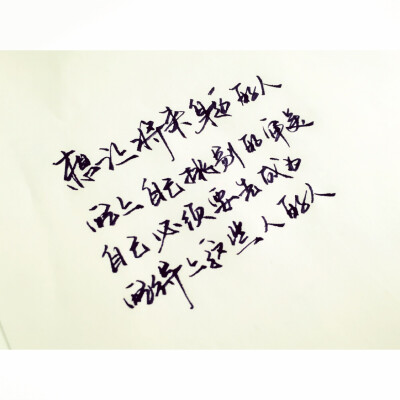 想让将来身边的人
配上自己挑剔的审美
自己必须要先成为
配得上这些人的人